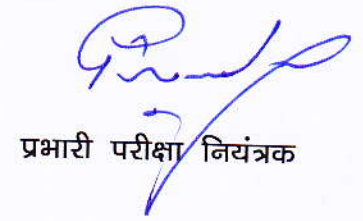 प्रभारी परीक्षा नियंत्रक